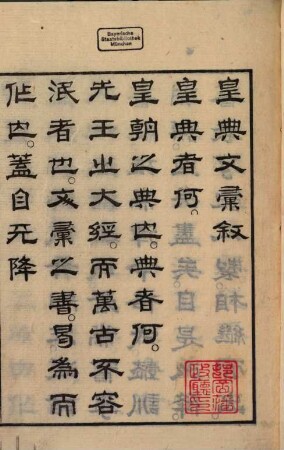 Bayerische
Staatsbibliothek
München
皇典文彙叙
皇典者何。
皇朝之典也。典者何。
先王之大经。而萬古不容
泯者也。文彙之書。曷為而
作也。蓋自天降